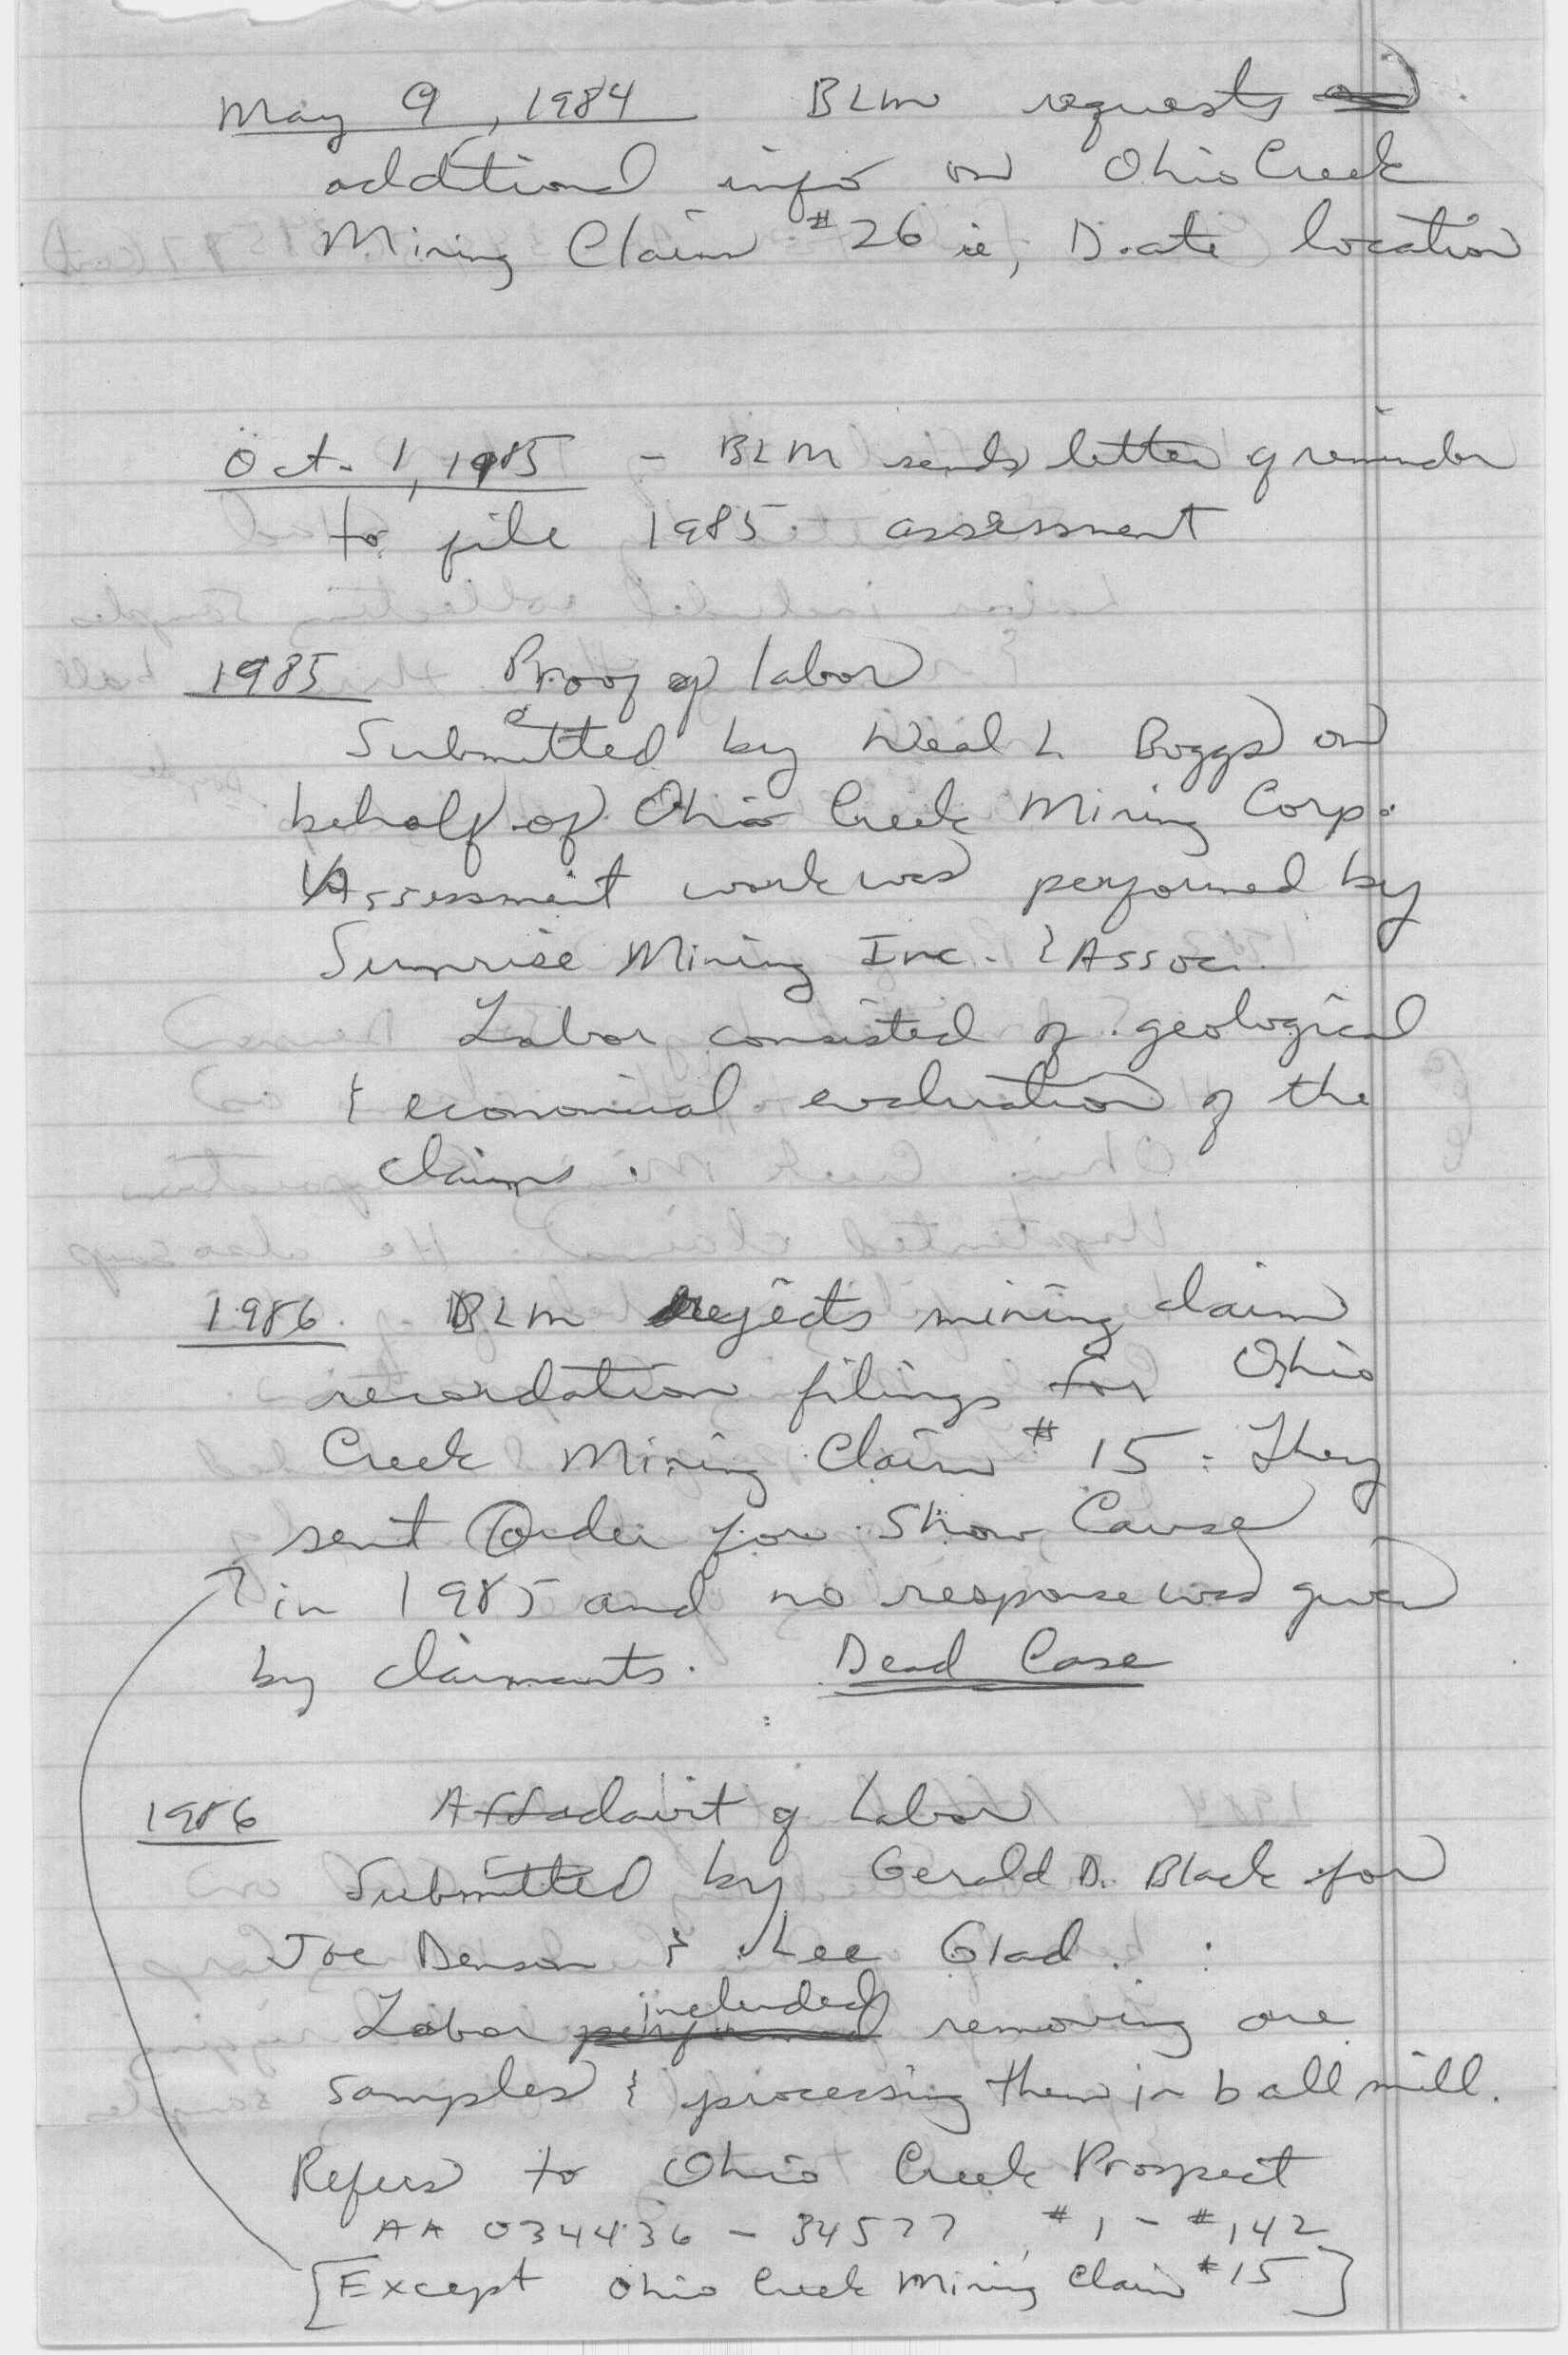 May 9, 1984 BLM requests
additional info on Ohio Creek
Mining Claim #26 ie, Date location
Oct. 1, 1985 - BLM sends letter of reminder
to file 1985 assessment
1985 Proof of labor
Submitted by Neal L Boggs on
behalf of Ohio Creek Mining Corp.
Assessment work was performed by
Sunrise Mining Inc. & Assoc.
Labor consisted of geological
& economical evaluation of the
claims.
1986. BLM rejects mining claim
recordation filings for Ohio
Creek Mining Claim #15. They
sent Order for Show Cause
in 1985 and no response was given
by claimants. Dead Case
1986 Affadavit of Labor
Submitted by Gerald D. Black for
Joe Denson & Lee Glad.
Labor performed included removing ore
samples & processing them in ball mill.
Refers to Ohio Creek Prospect
AA 034436 - 34577, #1 - #142
[Except Ohio Creek Mining Claim #15]